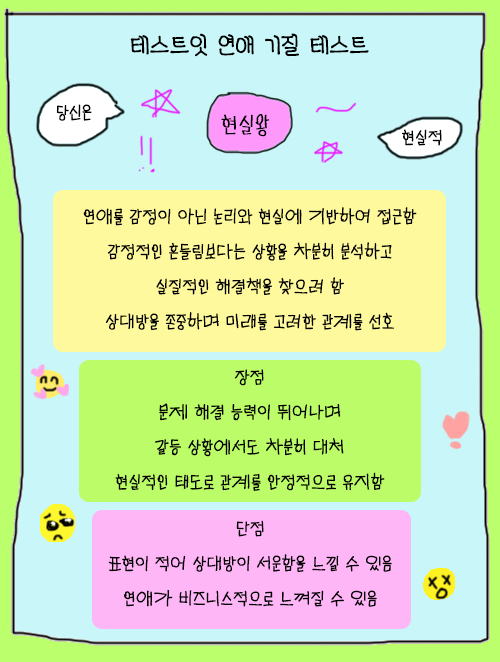 테스트잇 연애 기질 테스트
당신은
현실왕
!!
현실적
연애를 감정이 아닌 논리와 현실에 기반하여 접근함
감정적인 흔들림보다는 상황을 차분히 분석하고
실질적인 해결책을 찾으려 함
상대방을 존중하며 미래를 고려한 관계를 선호
장점
문제 해결 능력이 뛰어나며
갈등 상황에서도 차분히 대처
현실적인 태도로 관계를 안정적으로 유지함
단점
표현이 적어 상대방이 서운함을 느낄 수 있음
연애가 비즈니스적으로 느껴질 수 있음